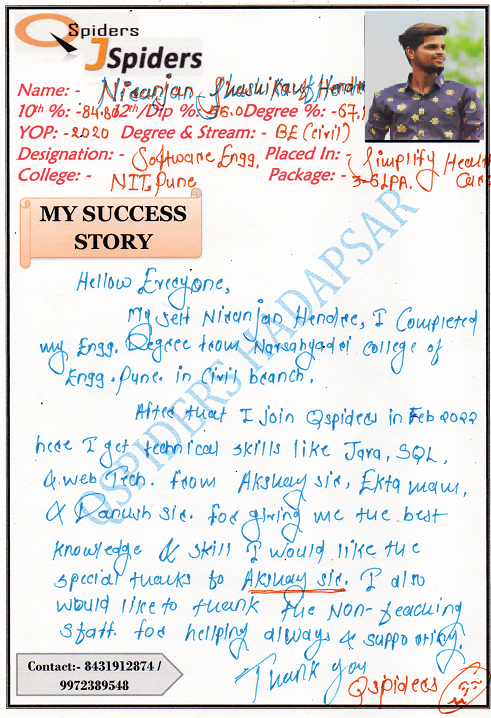 QSpiders
JSpiders
Name: - Niranjan Shashikant Hendre
10th %: -84.80 12th/Dip %: 56.0 Degree %: -67.
YOP: -2020 Degree & Stream: - BE (civil)
Designation: - Software Engg. Placed In: - Simplify Health
College: - NIT, Pune Package: - 3.6LPA.
MY SUCCESS
STORY
Hellow Everyone,
My self Niranjan Hendre, I Completed
my Engg. Degree from Narsahyadri college of
Engg. Pune. in Civil branch.
After that I join Qspiders in Feb 2022
here I get technical skills like Java, SQL,
& web Tech. from Akshay sir, Ekta mam,
& Danush sir. for giving me the best
knowledge & skill I would like the
special thanks to Akshay sir. I also
would like to thank the Non-teaching
staff for hellping always & supporting.
Thank you
Qspiders
Contact:- 8431912874 /
9972389548
QSPIDERS HADAPSAR